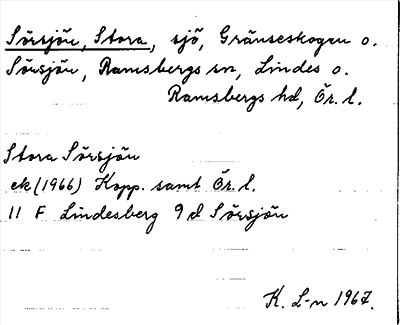 Sörsjön, Stora, sjö, Gränseskogen o.
Sörsjön, Ramsbergs sn, Lindes o.
Ramsbergs hd, Ör. l.
Stora Sörsjön
ek (1966) Kopp. samt Ör. l.
11 F Lindesberg 9 d Sörsjön
K. L-n 1967.